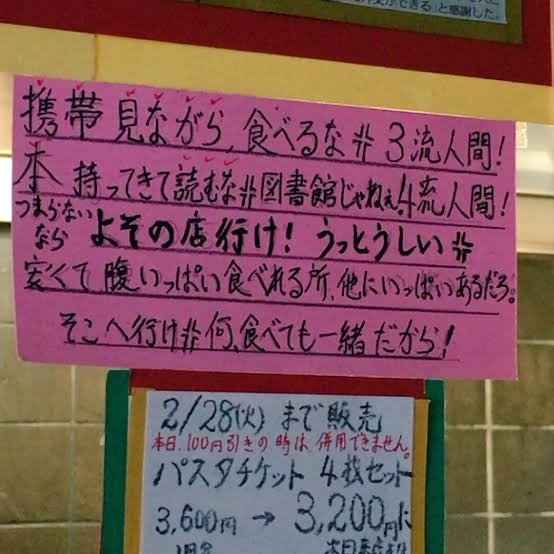 ができる」と感謝した。
携帯見ながら、食べるな♯3流人間!
本持ってきて読むな♯図書館じゃねぇ!4流人間!
つまらないなら よその店行け! うっとうしい♯
安くて腹いっぱい食べれる所、他にいっぱいあるだろ。
そこへ行け♯何、食べても一緒だから!
2/28(火)まで販売
本日100円引きの時は、併用できません。
パスタチケット 4枚セット
3,600円→3,200円に